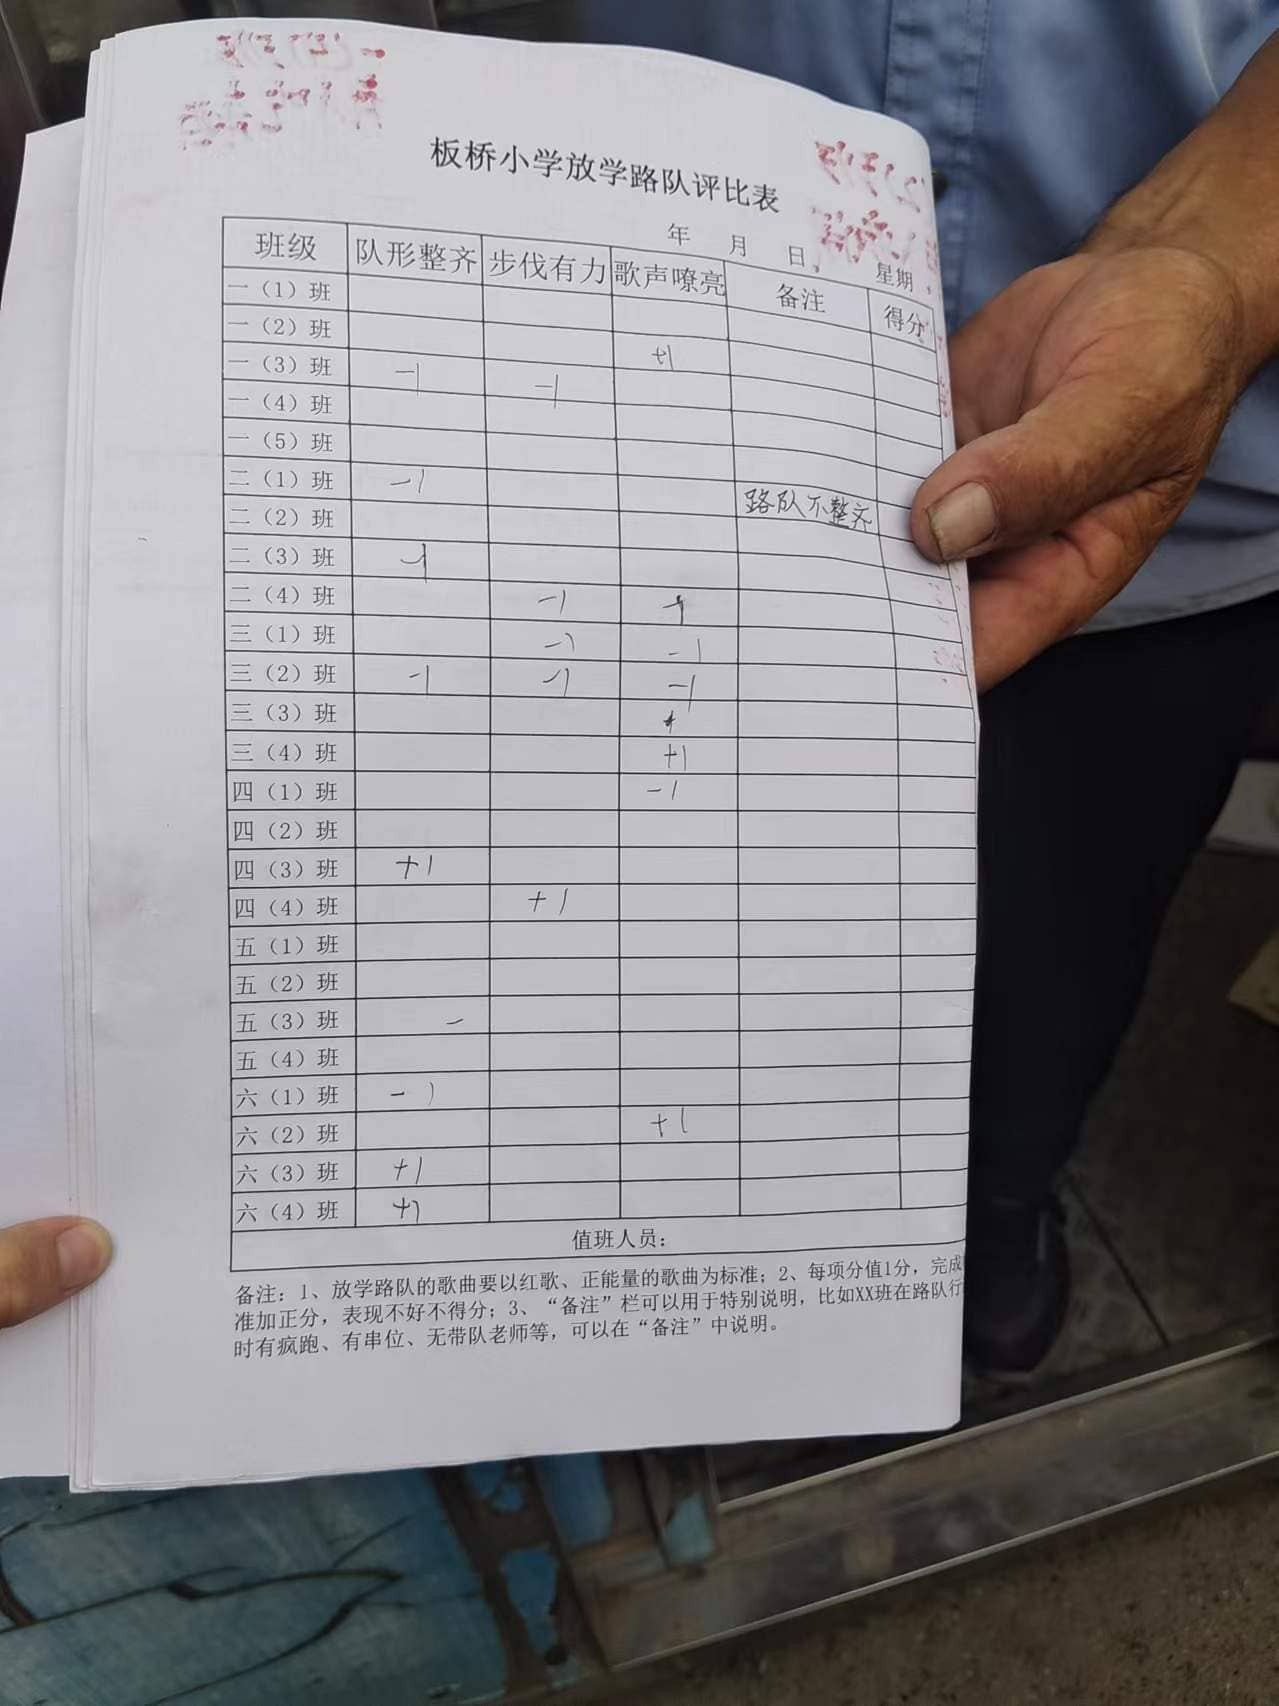 板桥小学放学路队评比表
年 月 日 星期
班级 队形整齐 步伐有力 歌声嘹亮 备注 得分
一（1）班
一（2）班
一（3）班 -1 -1 +1
一（4）班
一（5）班
二（1）班 -1
二（2）班 路队不整齐
二（3）班 -1
二（4）班 -1
三（1）班 -1 -1
三（2）班 -1 -1 -1
三（3）班
三（4）班 +1
四（1）班 -1
四（2）班
四（3）班 +1
四（4）班 +1
五（1）班
五（2）班
五（3）班 -
五（4）班
六（1）班 -1
六（2）班 +1
六（3）班 +1
六（4）班 +1
值班人员：
备注：1、放学路队的歌曲要以红歌、正能量的歌曲为标准；2、每项分值1分，完成
准加正分，表现不好不得分；3、“备注”栏可以用于特别说明，比如XX班在路队行
时有疯跑、有串位、无带队老师等，可以在“备注”中说明。